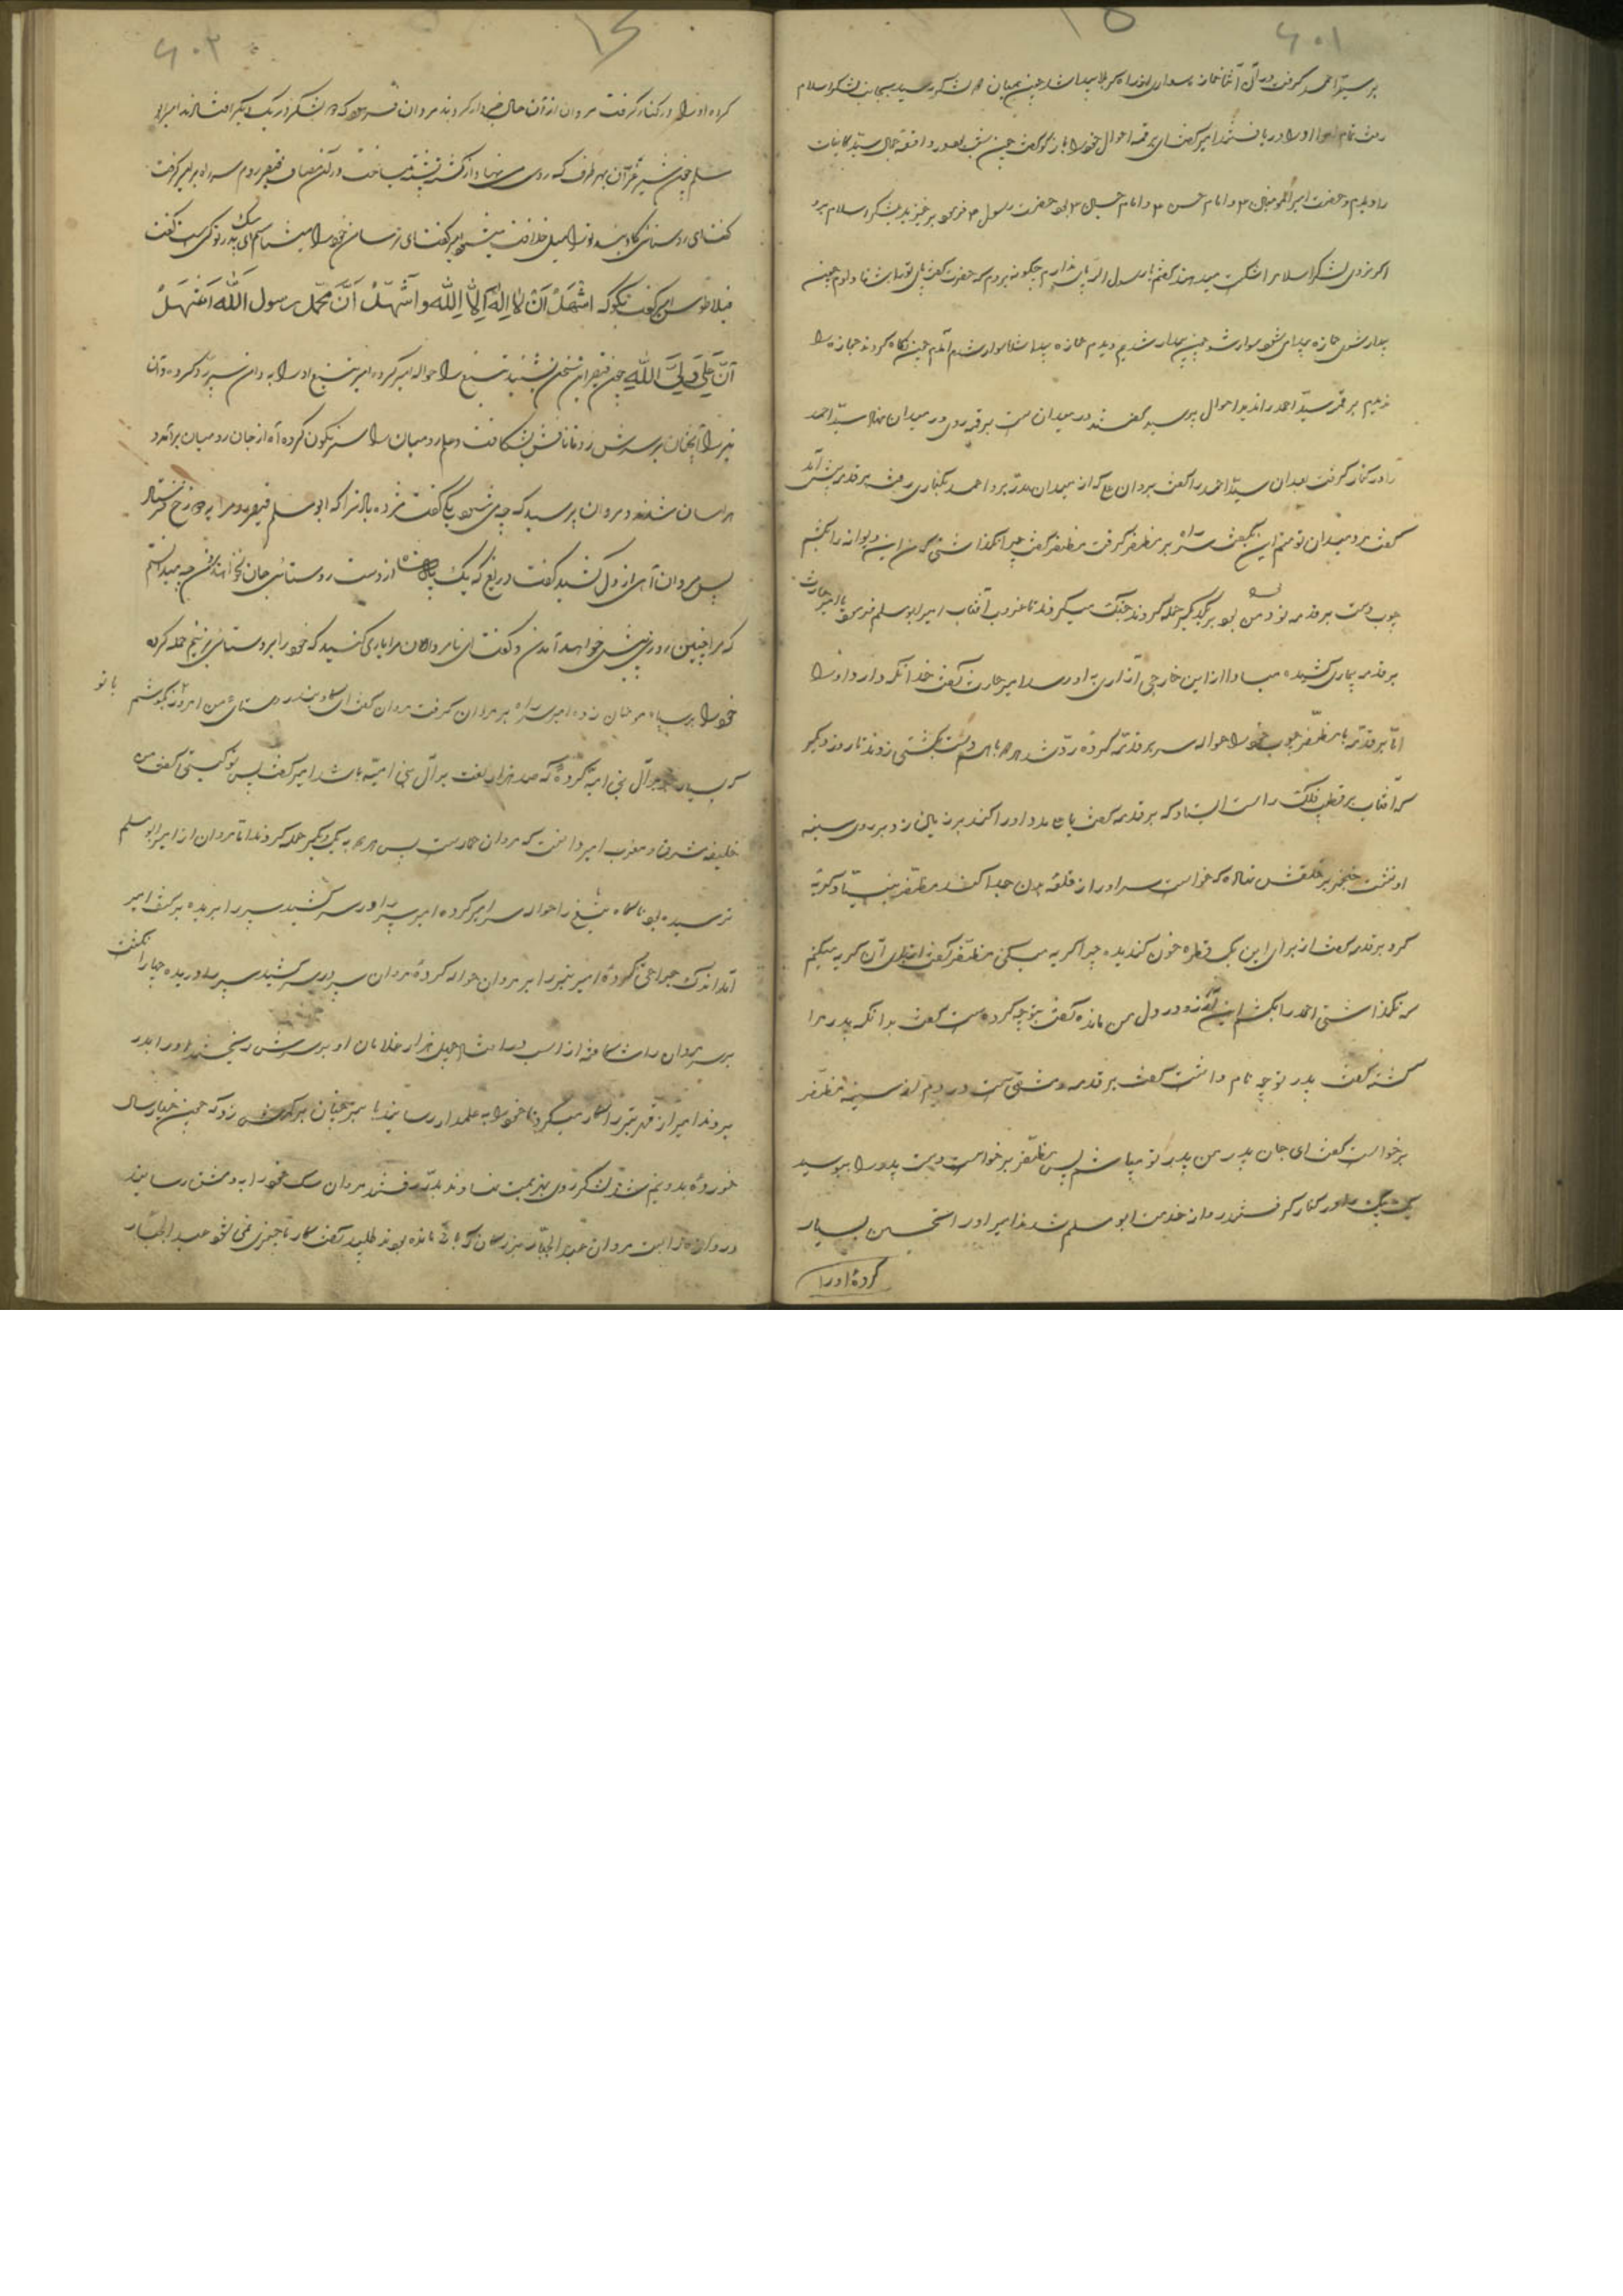 ۶۰۱
بر سید احمد گرفت در آن اثنا جمازه سواری از راه کربلا پیدا شد چون بمیان هر لشکر رسید بجانب لشکر اسلام
رفت تمام او را دریافتند امیر گفت ای برقمه احوال خود را بازگو گفت چون شب در واقعه جمال سید کاینات
را دیدم و حضرت امیر المومنین و امام حسن و امام حسین بود حضرت رسول فرمود برخیزید بلشکر اسلام برو
اگر نروی لشکر اسلام را شکست میدهند گفتم یا رسول الله پای ندارم چگونه بروم که حضرت گفت پای تو را شفا دادم چون
بیدار شوی جمازه پیدا می شود سوار شو چون بیدار شدم دیدم جمازه پیدا شد سوار شدم آمدم چون نگاه کردند جمازه را
ندیدم برقمه سید احمد را ندید احوال پرسید گفتند در میدان است برقمه روی در میدان نهاد سید احمد
را در کنار گرفت بعد از آن سید احمد را گفت برو احمد بکناری رفت برقمه پیش آمد
گفت مرد میدان تو منم این بگفت سر راه بر مظفر گرفت مظفر گفت چرا نگذاشتی که من این دیوانه را بکشم
چوب دست برقمه نود من بود بر یکدیگر حمله کردند جنگ میکردند تا غروب آفتاب امیر ابومسلم فرمود یا امیر حارث
برقمه بیماری کشیده مبادا از این خارجی آزاری به او رسد امیر حارث گفت خدا نگهدارد او را
اما برقمه با مظفر چوب خود را حواله سر برقمه کرده رد شد هر دو باهم دست بکشتی زدند تا روز دیگر
که آفتاب بر قطب فلک راست ایستاد که برقمه گفت یا علی مدد او را کند بر زمین زد بر روی سینه
او نشست خنجر بر حلقش نهاد که خواست سر او را از قلعه بدن جدا کند مظفر بنیاد گریه
کرد برقمه گفت از برای این یک قطره خون گندیده چرا گریه میکنی مظفر گفت از برای آن گریه میکنم
که نگذاشتی احمد را بکشم این آرزو در دل من مانده گفت بتو چه کرده است گفت بدانکه پدر مرا
کشته گفت پدر تو چه نام داشت گفت برقمه دمشقی است در دم از سینه مظفر
برخواست گفت ای جان پدر من پدر تو میباشم پس مظفر برخواست دست پدر را ببوسید
یکدیگر را در کنار گرفتند روان خدمت ابومسلم شدند امیر او را تحسین بسیار
کرده او را
۶۰۲
کرده او را در کنار گرفت مروان از آن حال خبردار کردند مروان فرمود که هر لشکر در یک دیگر افتادند امیر ابو
مسلم چون شیر غرّان بهر طرف که روی می نهاد از کشته پشته میساخت در آن مصاف قیصر روم سر راه بر امیر گرفت
گفت ای روستائی گاوبند تو را میل خلافت میشود امیر گفت ای ترسا من خود را میشناسم ای سگ پدر تو کیست گفت
فیلاطوس امیر گفت بگو که اشهد ان لا اله الا الله و اشهد ان محمد رسول الله اشهد
ان علی ولی الله چون قیصر این سخن بشنید تیغ را حواله امیر کرده امیر تیغ او را به دامن سپر رد کرده و آن
تبر را آنچنان بر سرش زد تا نافش بشکافت و علم رومیان را سرنگون کرده آه از جان رومیان برآمد و
هراسان شدند و مروان پرسید که چه می شود یکی گفت مژده باد ترا که ابومسلم قیصر روم را بدوزخ فرستاد
پس مروان آهی از دل کشید گفت دریغ که یک پادشاه از دست روستائی جان بخواهد دادن چه میدانستم
که مرا چنین روزی پیش خواهد آمدن و گفت ای نامردان مرا یاری کنید که خود را بر روستائی بزنیم حمله کرده
خود را بر سپاه مومنان زده امیر سر راه بر مروان گرفت مروان گفت ای گاوبند روستای من امروز بکوشم با تو
که بسیار بر آل بنی امیه کرده که صد هزار لعنت بر آل بنی امیه باشد امیر گفت پس تو کیستی گفت من
خلیفه مشرق و مغرب امیر دانست که مروان حمار است پس هر دو به یکدیگر حمله کردند تا مروان از امیر ابومسلم
ترسیده بود ناگاه تیغ را حواله سر امیر کرده امیر سپر را در سر کشید سپر را بریده بر کتف امیر
آمد اندک جراحتی کرده امیر تبر را بر مروان حواله کرده مروان سپر در سر کشید سپر را دریده چهار انگشت
بر سر مروان را شکافته از اسب در افتاد چهل هزار غلامان او بر سرش ریختند او را بدر
بردند امیر از قهر تبر را کار میکرد تا خود را به علمدار رسانید تا تبر چنان بر کمرش زد که چون خیار سال
خورده بدو نیم شد آن لشکر روی بهزیمت نهادند بدر رفتند مروان سگ خود را به دمشق رسانید
دروازه را بست مروان عبد الجبار بزرگان که باقی مانده بودند طلبید گفت کار ما چیزی نمی شود عبد الجبار